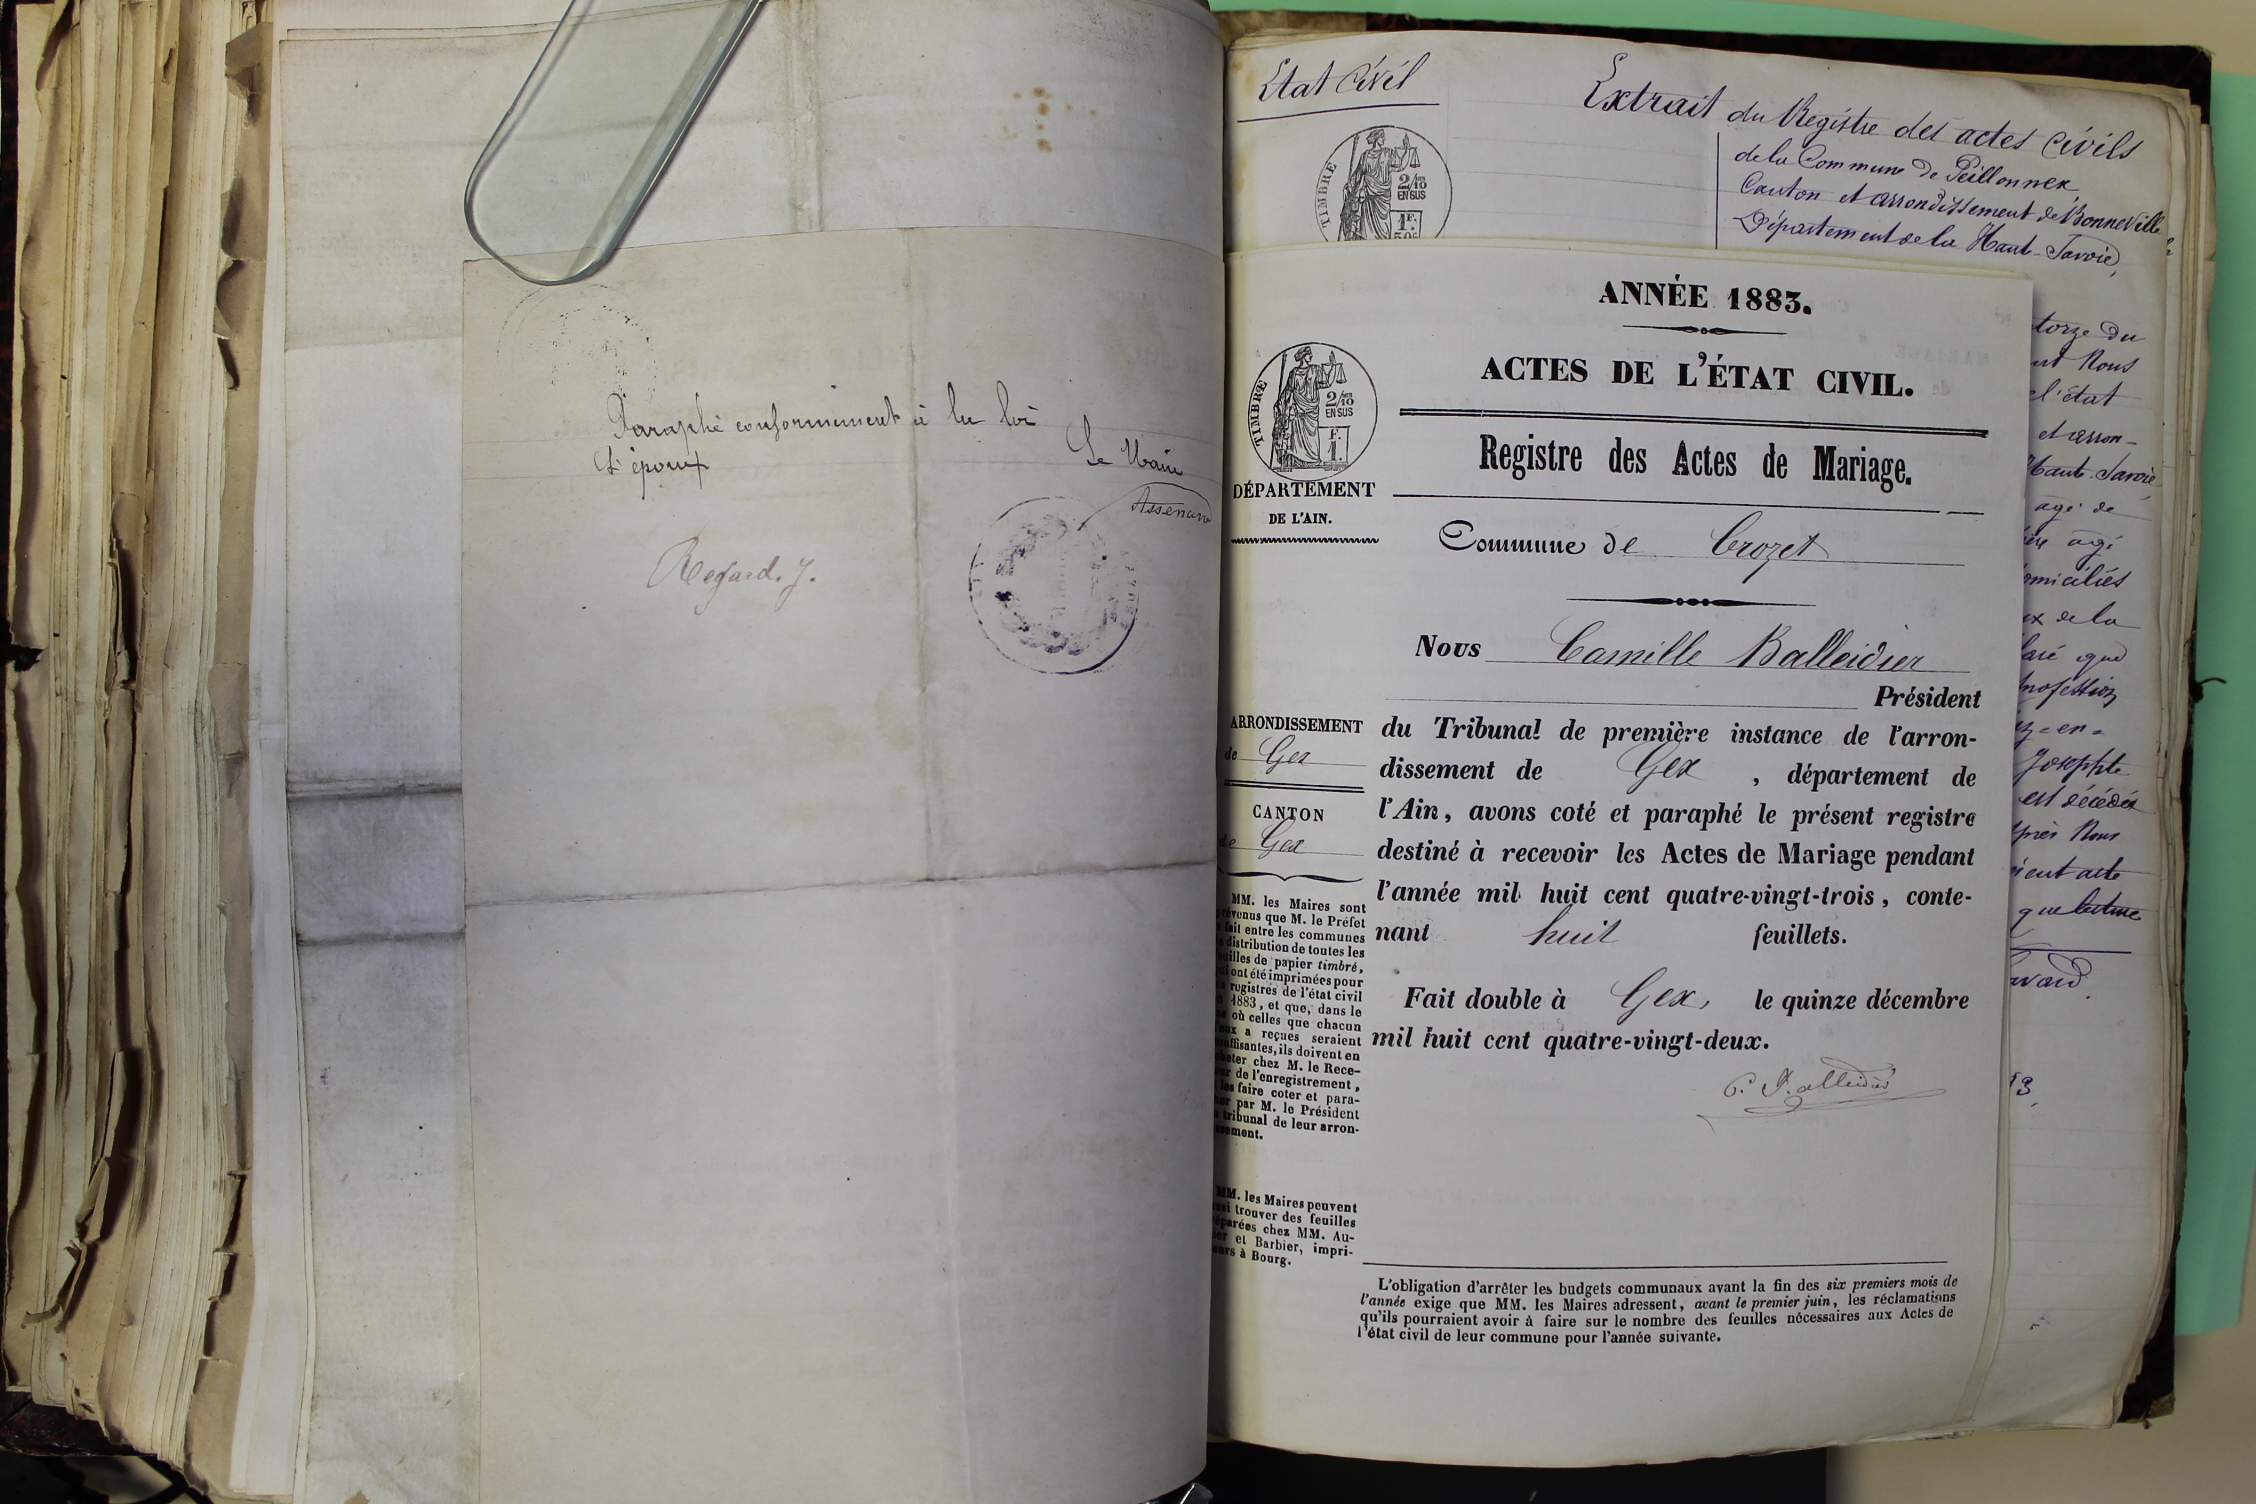 Paraphé conformément à la loi
L'époux
Le Maire
Regard. J.
Etat Civil
Extrait du Registre des actes Civils
de la Commune de Peillonnex
Canton et arrondissement de Bonneville
Département de la Haute-Savoie,
TIMBRE
2/10
EN SUS
1 F.
50c
torze du
Nous
l'état
et arron-
Haute-Savoie,
agé de
agé
domiciliés
de la
que
profession
=en=
Josephte
est décédée
Nous
acte
que lecture
ANNÉE 1883.
ACTES DE L'ÉTAT CIVIL.
Registre des Actes de Mariage.
TIMBRE
2/10
EN SUS
F.
1.
DÉPARTEMENT
DE L'AIN.
Commune de Crozet
Nous Camille Balleidier
Président
du Tribunal de première instance de l'arron-
dissement de Gex, département de
l'Ain, avons coté et paraphé le présent registre
destiné à recevoir les Actes de Mariage pendant
l'année mil huit cent quatre-vingt-trois, conte-
nant huit feuillets.
Fait double à Gex, le quinze décembre
mil huit cent quatre-vingt-deux.
C. Balleidier
ARRONDISSEMENT
de Gex
CANTON
de Gex
MM. les Maires sont
prévenus que M. le Préfet
a fait entre les communes
la distribution de toutes les
feuilles de papier timbré,
qui ont été imprimées pour
les registres de l'état civil
de 1883, et que, dans le
cas où celles que chacun
d'eux a reçues seraient
insuffisantes, ils doivent en
acheter chez M. le Rece-
veur de l'enregistrement,
et les faire coter et para-
pher par M. le Président
du tribunal de leur arron-
dissement.
MM. les Maires peuvent
aussi trouver des feuilles
préparées chez MM. Au-
et Barbier, impri-
meurs à Bourg.
L'obligation d'arrêter les budgets communaux avant la fin des six premiers mois de
l'année exige que MM. les Maires adressent, avant le premier juin, les réclamations
qu'ils pourraient avoir à faire sur le nombre des feuilles nécessaires aux Actes de
l'état civil de leur commune pour l'année suivante.